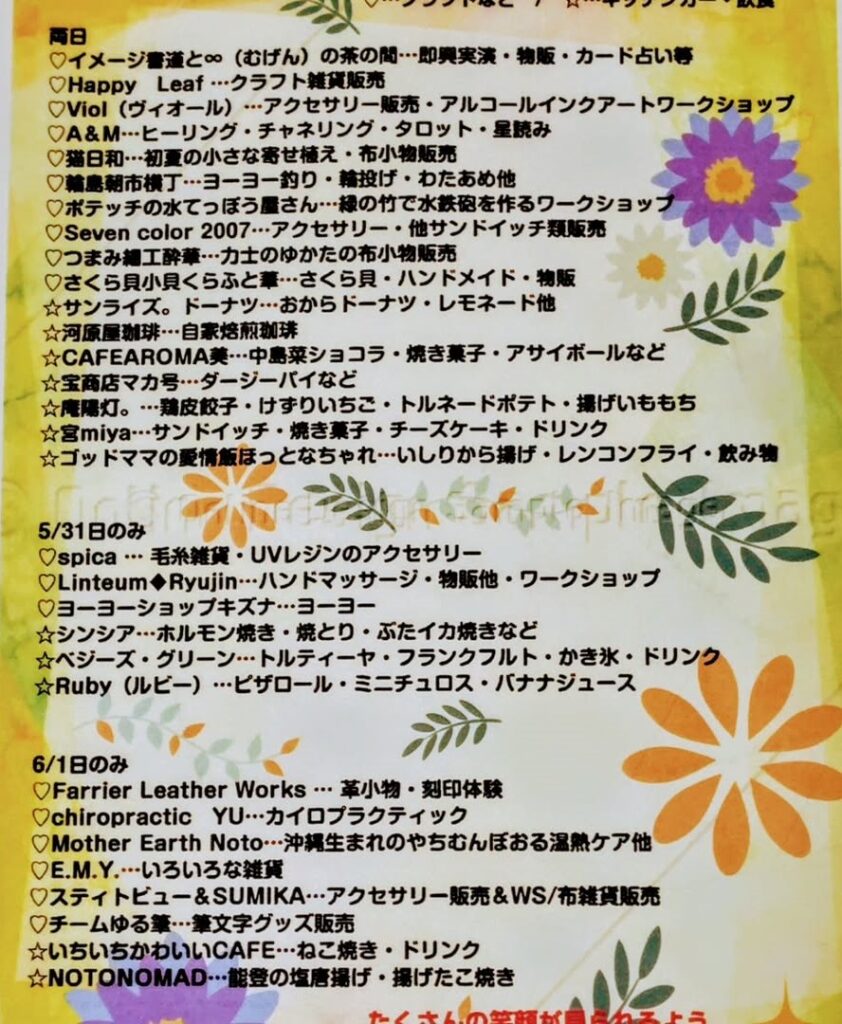 ♡…クラフトなど / ☆…キッチンカー・飲食
両日
♡イメージ書道と∞（むげん）の茶の間…即興実演・物販・カード占い等
♡Happy Leaf …クラフト雑貨販売
♡Viol（ヴィオール）…アクセサリー販売・アルコールインクアートワークショップ
♡A＆M…ヒーリング・チャネリング・タロット・星読み
♡猫日和…初夏の小さな寄せ植え・布小物販売
♡輪島朝市横丁…ヨーヨー釣り・輪投げ・わたあめ他
♡ポテッチの水てっぽう屋さん…緑の竹で水鉄砲を作るワークショップ
♡Seven color 2007…アクセサリー・他サンドイッチ類販売
♡つまみ細工酔華…力士のゆかたの布小物販売
♡さくら貝小貝くらふと華…さくら貝・ハンドメイド・物販
☆サンライズ。ドーナツ…おからドーナツ・レモネード他
☆河原屋珈琲…自家焙煎珈琲
☆CAFEAROMA美…中島菜ショコラ・焼き菓子・アサイボールなど
☆宝商店マカ号…ダージーパイなど
☆庵陽灯。…鶏皮餃子・けずりいちご・トルネードポテト・揚げいももち
☆宮miya…サンドイッチ・焼き菓子・チーズケーキ・ドリンク
☆ゴッドママの愛情飯ほっとなちゃれ…いしりから揚げ・レンコンフライ・飲み物
5/31日のみ
♡spica … 毛糸雑貨・UVレジンのアクセサリー
♡Linteum◆Ryujin…ハンドマッサージ・物販他・ワークショップ
♡ヨーヨーショップキズナ…ヨーヨー
☆シンシア…ホルモン焼き・焼とり・ぶたイカ焼きなど
☆ベジーズ・グリーン…トルティーヤ・フランクフルト・かき氷・ドリンク
☆Ruby（ルビー）…ピザロール・ミニチュロス・バナナジュース
6/1日のみ
♡Farrier Leather Works … 革小物・刻印体験
♡chiropractic YU…カイロプラクティック
♡Mother Earth Noto…沖縄生まれのやちむんぽおる温熱ケア他
♡E.M.Y.…いろいろな雑貨
♡スティトビュー＆SUMIKA…アクセサリー販売＆WS/布雑貨販売
♡チームゆる筆…筆文字グッズ販売
☆いちいちかわいいCAFE…ねこ焼き・ドリンク
☆NOTONOMAD…能登の塩唐揚げ・揚げたこ焼き
たくさんの笑顔が見られるよう